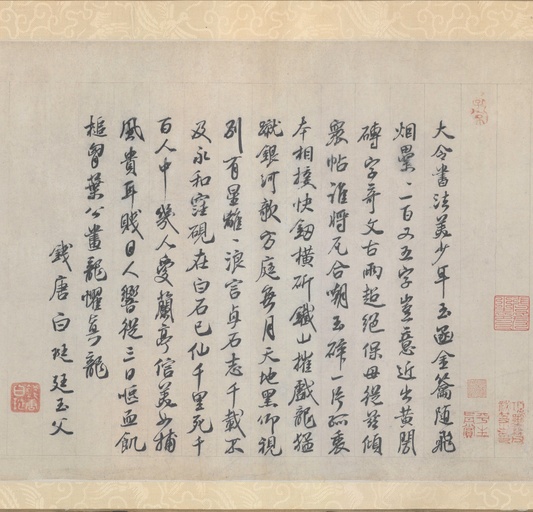 大令書法美少年玉函金籥随飛
烟壘〻一百又五字豈意近出黄閍
磚字奇文古兩超絶保母從茲傾
衆帖誰將瓦合嘲玉碎一片孤裏
本相接快劒橫斫鐵山摧戲龍猛
蹴銀河欹方庭無月天地黑仰視
列星離〻浪言貞石志千載不
及永和窪硯在白石已仙千里死千
百人中幾人愛蘭亭信美少補
風貴耳賤目人響從三日嘔血飢
槌胷葉公畫龍懼真龍
錢唐白珽廷玉父